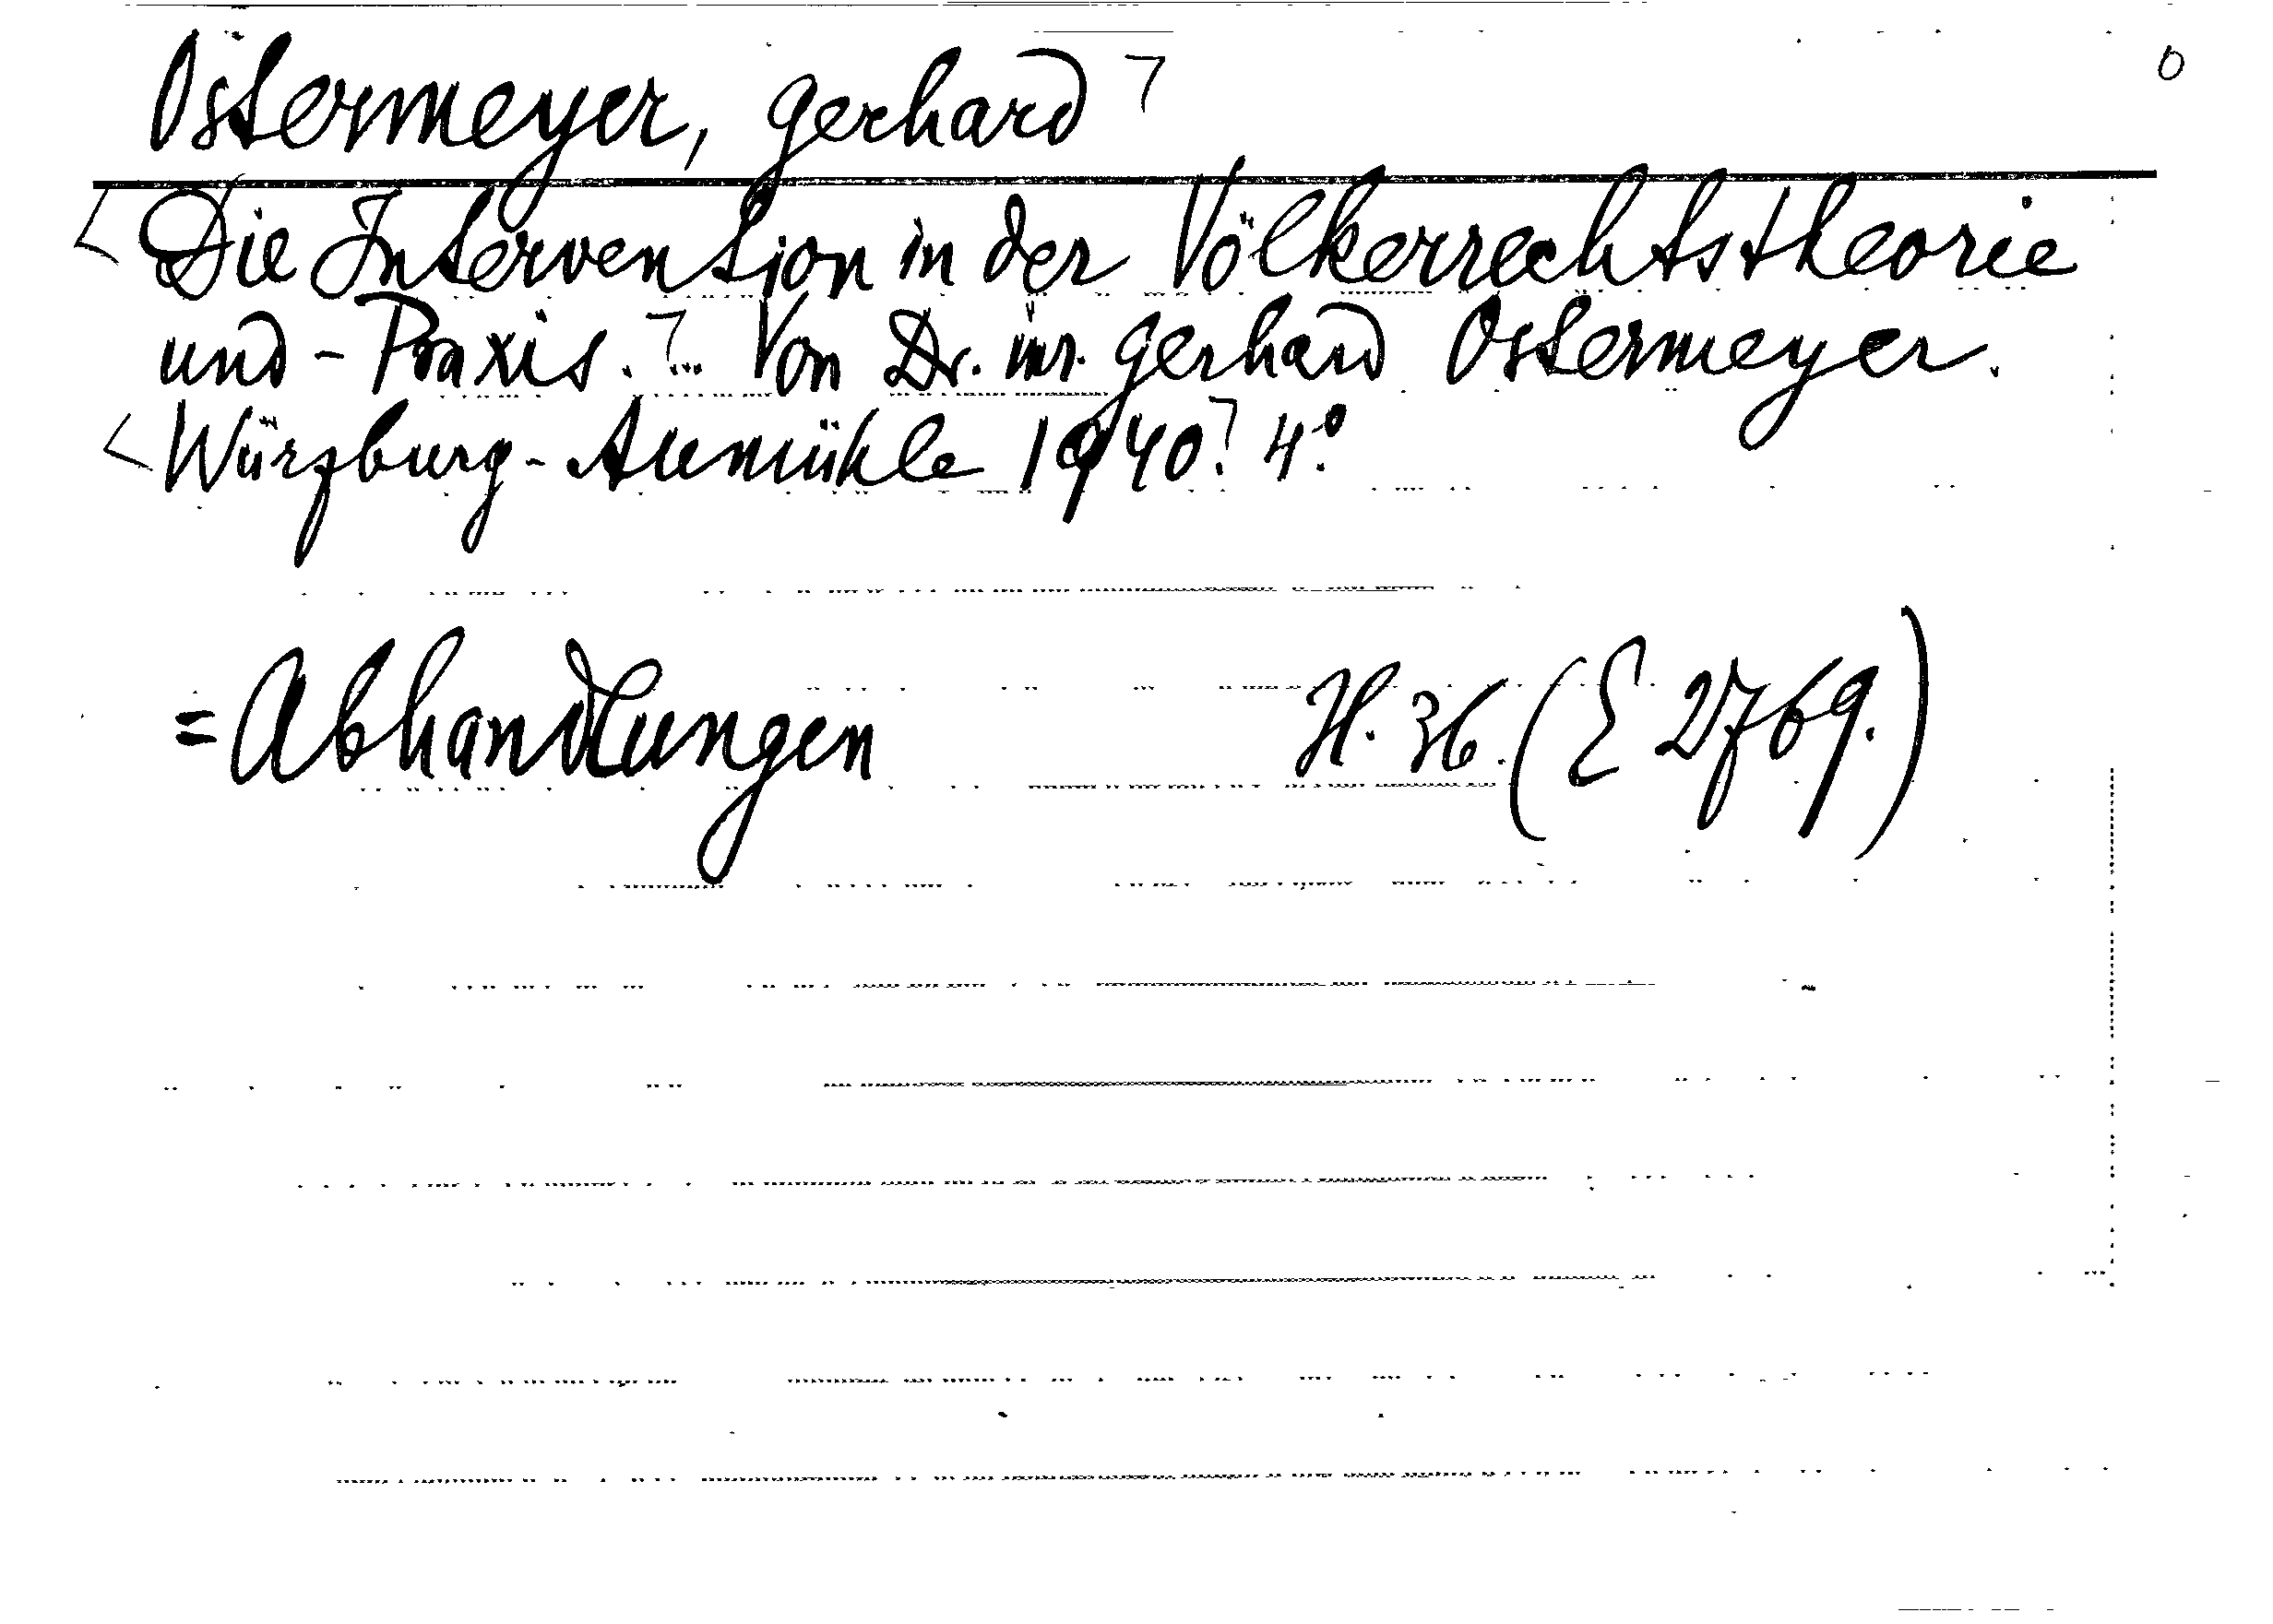 Ostermeyer, Gerhard ⌝ 0
< Die Intervention in der Völkerrechtstheorie
und -Praxis. ⌝ .. Von Dr. iur. Gerhard Ostermeyer.
< Würzburg-Aumühle 1940. ⌝ 4°.
= Abhandlungen H. 36. (E 2769.)